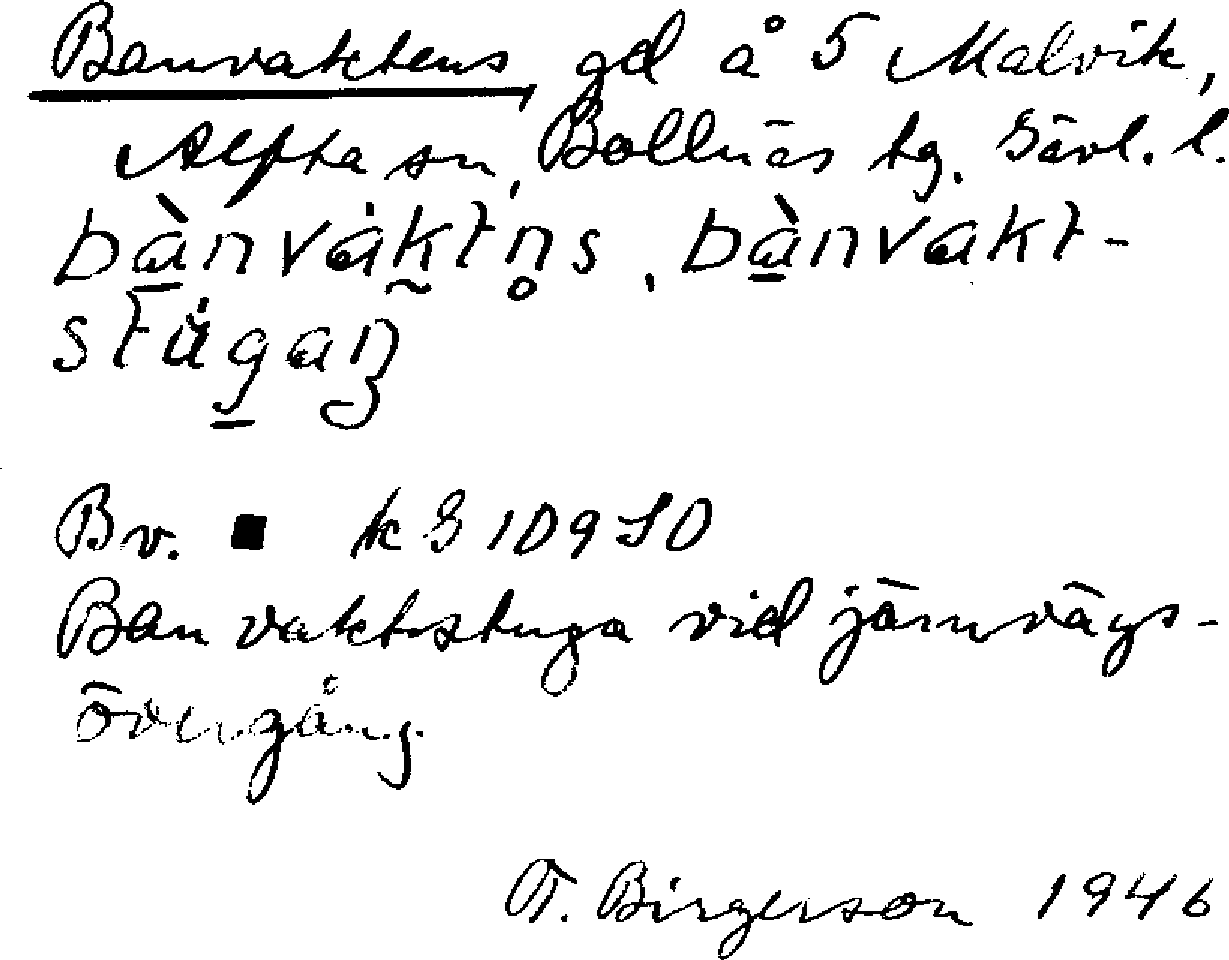 Banvaktens, gd å 5 Malvik,
Alfta sn, Bollnäs tg. Gävl. l.
bànvàktn̥s, bànvakt-
stùgaŋ
Bv. ■ k G 10 9 J 0
Banvaktstuga vid järnvägs-
övergång.
T. Birgerson 1946